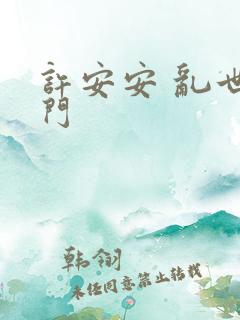 許安安亂世
門
韩翎
未经同意禁止转载